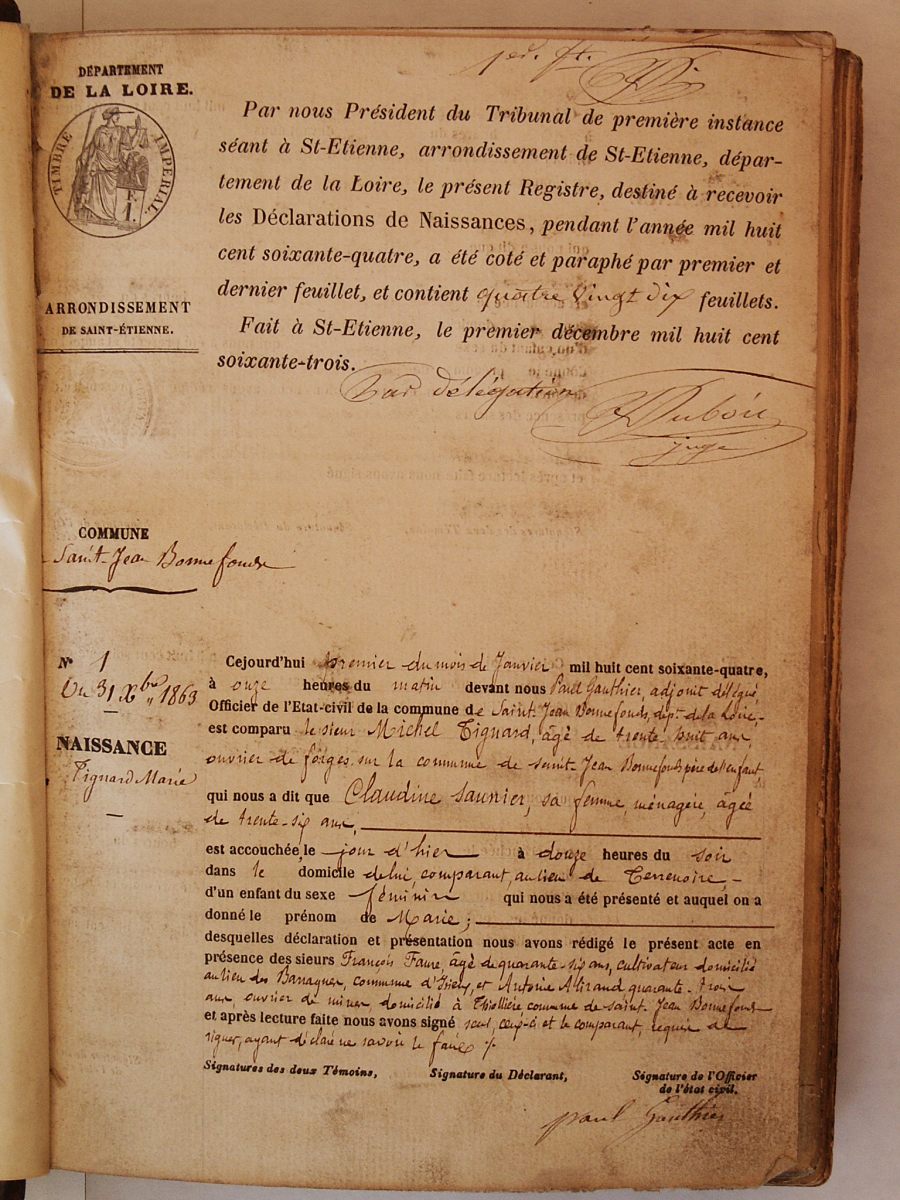 DÉPARTEMENT
DE LA LOIRE.
TIMBRE IMPERIAL
F.
1.
Par nous Président du Tribunal de première instance
séant à St-Etienne, arrondissement de St-Etienne, dépar-
tement de la Loire, le présent Registre, destiné à recevoir
les Déclarations de Naissances, pendant l'année mil huit
cent soixante-quatre, a été coté et paraphé par premier et
dernier feuillet, et contient quatre Vingt dix feuillets.
Fait à St-Etienne, le premier décembre mil huit cent
soixante-trois.
ARRONDISSEMENT
DE SAINT-ÉTIENNE.
Par délégation
juge
COMMUNE
Saint-Jean Bonnefonds
N° 1
Du 31 Xbre 1863
NAISSANCE
Tignard Marie
Cejourd'hui premier du mois de Janvier mil huit cent soixante-quatre,
à onze heures du matin devant nous Paul Gauthier, adjoint délégué
Officier de l'Etat-civil de la commune de Saint-Jean Bonnefonds, dépt. de la Loire,
est comparu le sieur Michel Tignard, âgé de trente huit ans,
ouvrier de forges, sur la commune de saint-Jean Bonnefonds père de l'enfant,
qui nous a dit que Claudine Saunier, sa femme, ménagère, âgée
de trente-six ans,
est accouchée, le jour d'hier à douze heures du soir
dans le domicile de lui, comparant, au lieu de Terrenoire,
d'un enfant du sexe féminin qui nous a été présenté et auquel on a
donné le prénom de Marie;
desquelles déclaration et présentation nous avons rédigé le présent acte en
présence des sieurs François Faure, âgé de quarante-six ans, cultivateur domicilié
au lieu des Baraques, commune d'Izieux, et Antoine quarante-trois
ans, ouvrier de mines, domicilié à Thiollière commune de saint-Jean Bonnefonds
et après lecture faite nous avons signé seul, ceux-ci et le comparant, requis de
signer, ayant déclaré ne savoir le faire ./.
Signatures des deux Témoins,
Signature du Déclarant,
Signature de l'Officier
de l'état civil.
paul Gauthier